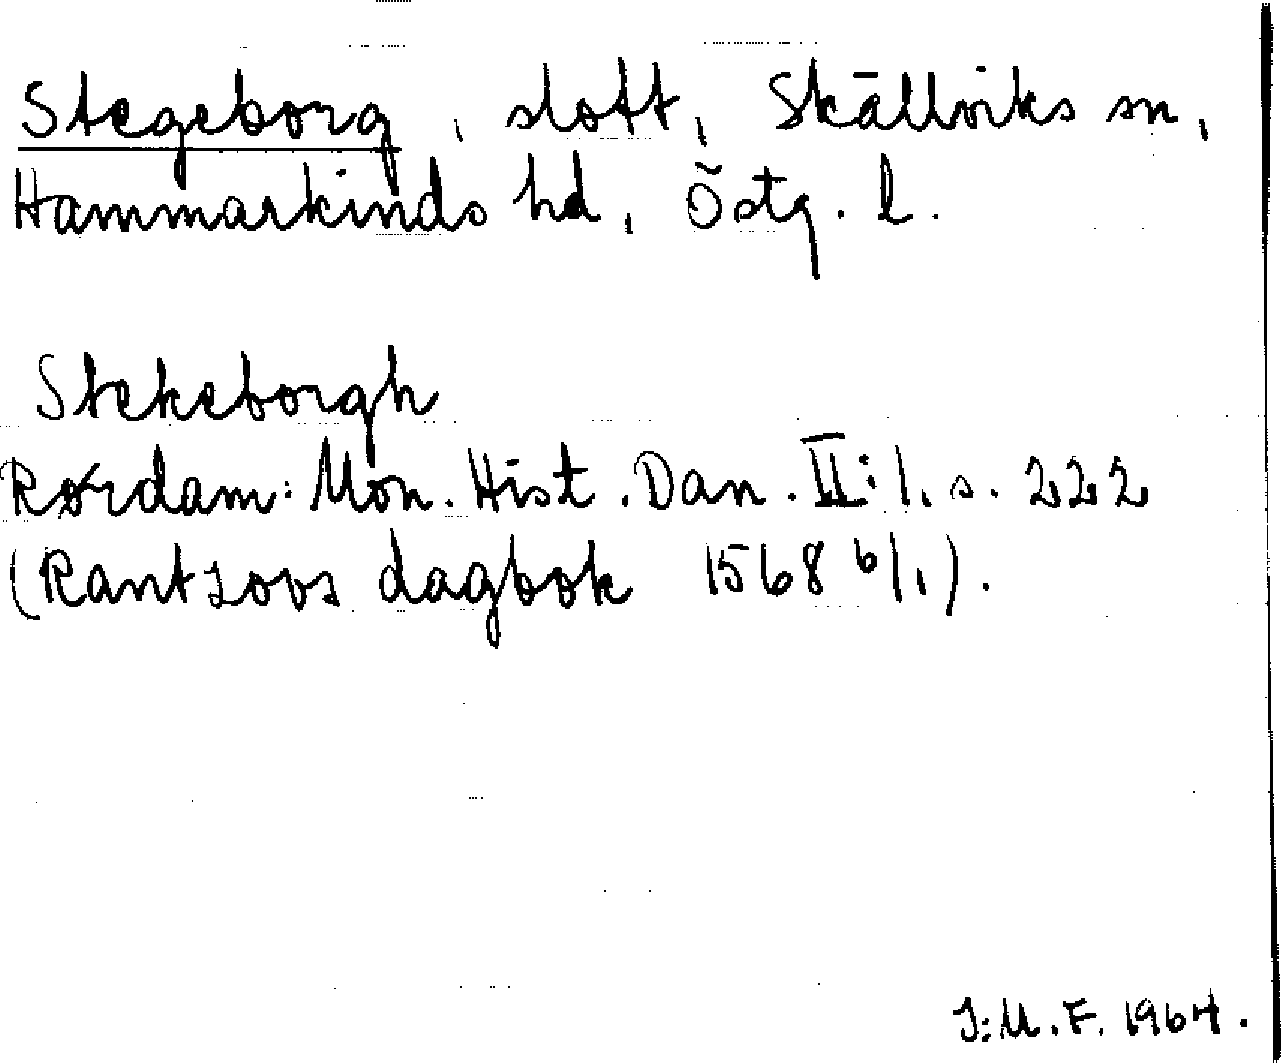 Stegeborg, slott, Skällviks sn,
Hammarkinds hd, Östg. l.
Stekeborgh
Rørdam: Mon. Hist. Dan. II:1, s. 222
(Rantzovs dagbok 1568 6/1).
J:M.F. 1964.